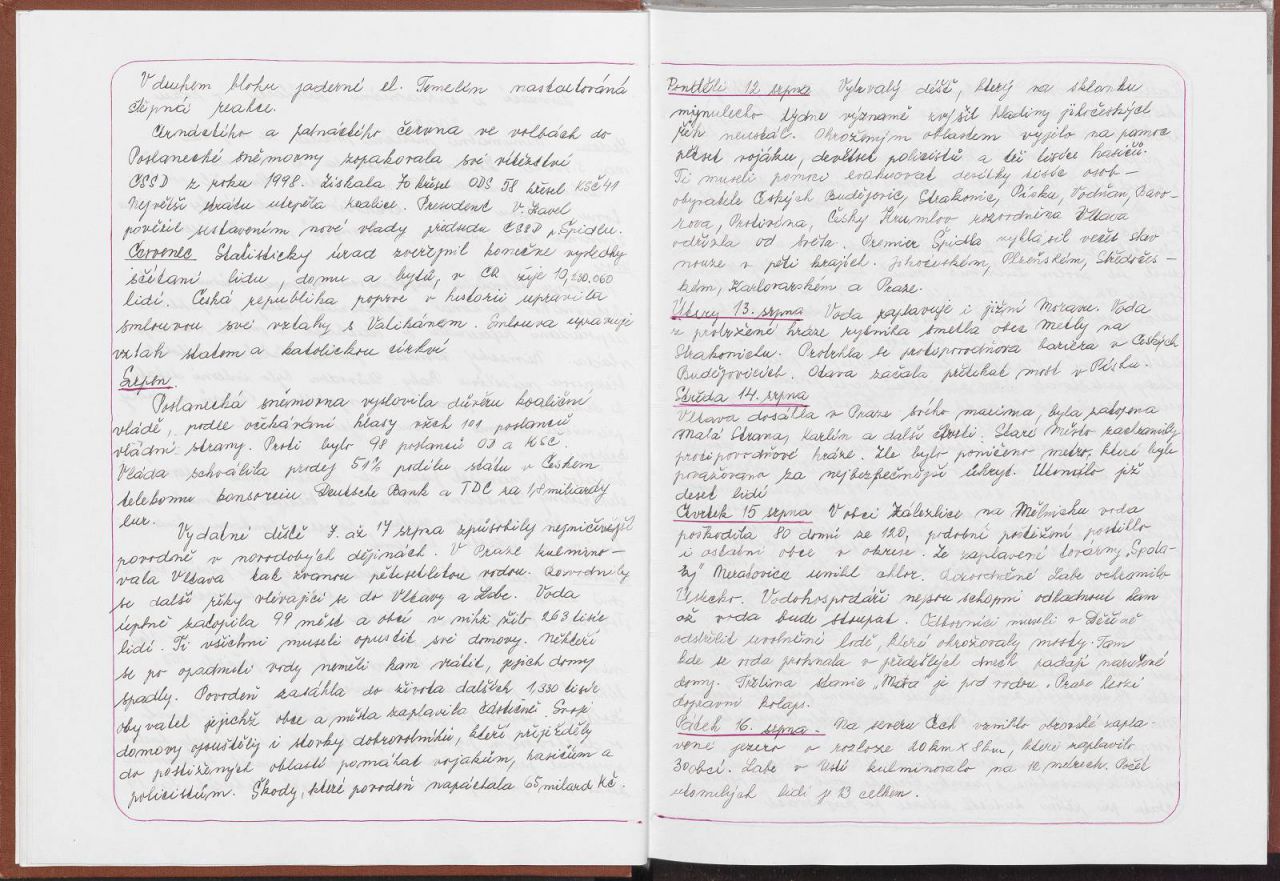 V druhém bloku jaderné el. Temelín nastartována
štěpná reakce.
Čtrnáctého a patnáctého června ve volbách do
Poslanecké sněmovny zopakovala své vítězství
ČSSD z roku 1998. Získala 70 křesel ODS 58 křesel KSČ 41
Největší ztrátu utrpěla koalice. President V. Havel
pověřil sestavením nové vlády předsedu ČSSD p. Špidlu.
Červenec Statistický úřad zveřejnil konečné výsledky
sčítání lidu, domu a bytů, v ČR žije 10,230.060
lidí. Česká republika poprvé v historii upravila
smlouvou své vztahy s Vatikánem. Smlouva upravuje
vztah statem a katolickou církví
Srpen.
Poslanecká sněmovna vyslovila důvěru koaliční
vládě, podle očekávání hlasy všech 101 poslanců
vládní strany. Proti bylo 98 poslanců OD a KSČ.
Vláda schválila prodej 51% podílu státu v Českém
telekomu konsorciu Deutsche Bank a TDC za 1,8 miliardy
Eur.
Vydatné deště 7. až 17 srpna způsobily nejničivější
povodně v novodobých dějinách. V Praze kulmino-
vala Vltava tak zvanou pětisetletou vodou. Rozvodnily
se další říky vlévající se do Vltavy a Labe. Voda
úplně zatopila 99 měst a obcí v nichž žilo 263 tisíc
lidí. Ti všichni museli opustit své domovy. Někteří
se po opadnutí vody neměli kam vrátit, jejich domy
spadly. Povodeň zasáhla do života dalších 1,330 tisíc
obyvatel jejichž obce a města zaplavila částečně. Svoji
domovy opouštěly i stovky dobrovolníků, kteří přijížděly
do postižených oblastí pomáhat vojákům, hasičům a
policistům. Škody, které povodeň napáchala 65 miliard Kč.
Pondělí 12 srpna Vytrvalý déšť, který na sklonku
minulého týdne významě zvýšil hladiny jihočeských
řek neustál. Ohroženým oblastem vyjelo na pomoc
pětset vojáku, devětset policistů a tři tisíce hasičů.
Ti museli pomoci evakuovat desítky tisíc osob-
obyvatele Českých Budějovic, Strakonic, Písku, Vodňan, Bavo-
rova, Protivína, Český Krumlov rozvodněná Vltava
odřízla od světa. Premier Špidla vyhlásil večer stav
nouze v pěti krajích. Jihočeském, Plzeňském, Středočes-
kém, Karlovarském a Praze.
Úterý 13. srpna Voda zaplavuje i jižní Moravu. Voda
z protržené hráze rybníka smetla obec Metly na
Strakonicku. Protrhla se protipovodňová bariéra v Českých
Budějovicích. Otava začala přetékat most v Písku.
Středa 14. srpna
Vltava dosáhla v Praze svého maxima, byla zatopena
Malá Strana, Karlín a další čtvrti. Staré Město zachránily
protipovodňové hráze. Zle bylo poničeno metro, které bylo
považováno za nejbezpečnější úkryt. Utonulo již
deset lidí
Čtvrtek 15 srpna V obci Zálezlice na Mělnicku voda
poškodila 80 domů ze 120, podobné postižení postihlo
i ostatní obce v okrese. Ze zaplavené továrny „Spola-
ny" Neratovice unikl chlor. Rozvodněné Labe ochromilo
Ústecko. Vodohospodáři nejsou schopni odhadnout kam
až voda bude stoupat. Odborníci museli v Děčíně
odstřelit uvolněné lodě, které ohrožovaly mosty. Tam
kde se voda prohnala v předešlých dnech padají narušené
domy. Třetina stanic „Metra" je pod vodou. Praze hrozí
dopravní kolaps.
Pátek 16. srpna. Na severu Čech vzniklo obrovské zapla-
vené jezero o rozloze 20km x 8km, které zaplavilo
30 obcí. Labe v Ústí kulminovalo na 12 metrech. Počet
utonulých lidí je 13 celkem.